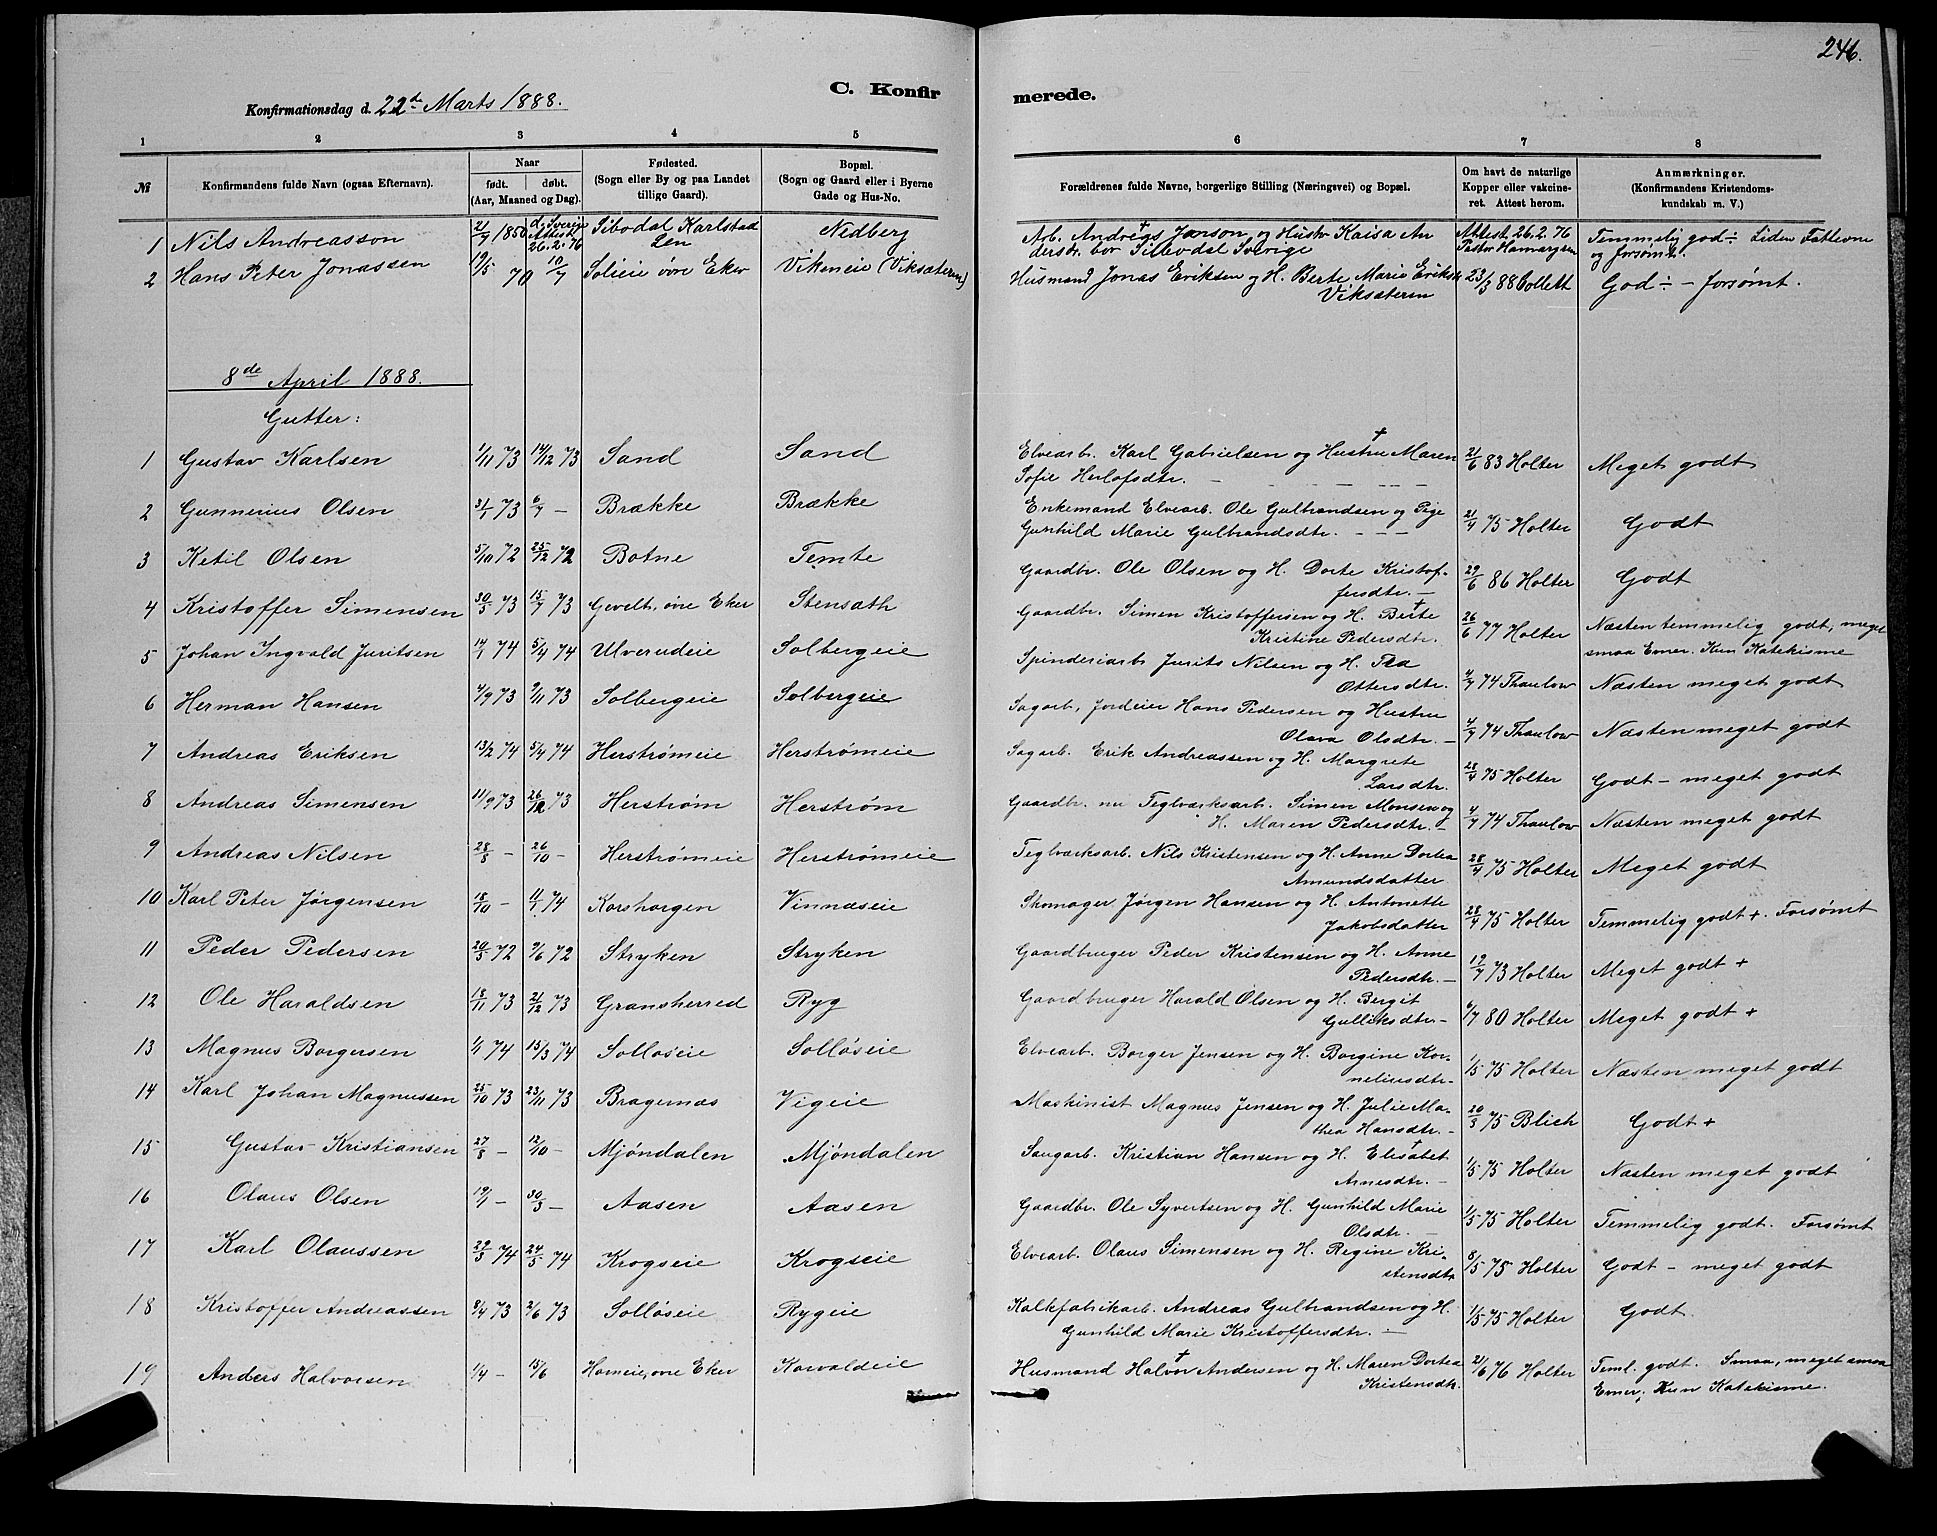 246.
Konfirmationsdag d. 22de Marts 1888.
C. Konfir
merede.
1 2 3 4 5 6 7 8
№
Konfirmandens fulde Navn (ogsaa Efternavn).
Naar
født. døbt.
(Aar, Maaned og Dag).
Fødested.
(Sogn eller By og paa Landet
tillige Gaard).
Bopæl.
(Sogn og Gaard eller i Byerne
Gade og Hus-No.
Forældrenes fulde Navne, borgerlige Stilling (Næringsvei) og Bopæl.
Om havt de naturlige
Kopper eller vakcine-
ret. Attest herom.
Anmærkninger.
(Konfirmandens Kristendoms-
kundskab m. V.)
1 Nils Andreasson 21/7 1850 d. i Sverige Attest 26.2.76 Silbodal Karlstad Len Nedberg Arb. Andreas† Jonson og Hustr Kaisa An
dersdr. bor Silbodal Sverige Attest 26.2.76 Temmelig god ÷ Liden Fatteevne
og forsømt.
2 Hans Peter Jonassen 19/5 70 10/7 Solieie øvre Eker Vikeneie (Viksæteren) Husmand Jonas Eriksen og H. Berte Marie Eriksdr
Viksæteren 23/3 88 Collett God ÷ - forsømt.
8de April 1888.
Gutter:
1 Gustav Karlsen 1/11 73 14/12 73 Sand Sand Elvearb. Karl Gabrielsen og Hustru† Maren
Sofie Herlofsdtr. - 21/6 83 Holter Meget godt
2 Gunnerius Olsen 31/1 73 6/7 - Brække Brække Enkemand Elvearb. Ole Gulbrandsen og Pige
Gunhild Marie Gulbrandsdtr. - - - 21/4 75 Holter Godt
3 Ketil Olsen 5/10 72 25/12 72 Botne Temte Gaardbr. Ole Olsen og H. Dorte Kristof-
fersdtr. - 29/6 86 Holter Godt
4 Kristoffer Simensen 30/5 73 15/7 73 Gevelt, øvre Eker Stensæth Gaardbr. Simen Kristoffersen og H. Berte†
Kristine Pedersdtr. 26/6 77 Holter Næsten temmelig godt, meget
smaa Evner. Kun Katekisme
5 Johan Ingvald Juritsen 14/1 74 5/4 74 Ulverudeie Solbergeie Spinderiarb Jurits Nilsen og H. Pea
Ottersdtr. 4/7 74 Thaulow Næsten meget godt
6 Herman Hansen 4/9 73 9/11 73 Solbergeie Solbergeie Sagarb, Jordeier Hans Pedersen og Hustru
Olava Olsdtr. - 4/7 74 Thaulow Næsten meget godt
7 Andreas Eriksen 13/2 74 5/4 74 Herstrømeie Herstrømeie Sagarb. Erik Andreassen og H. Margrete
Larsdtr. 28/4 75 Holter Godt - meget godt
8 Andreas Simensen 11/9 73 26/12 73 Herstrøm Herstrøm Gaardbr. nu Teglværksarb. Simen Monsen og
H. Maren Pedersdtr. - 4/7 74 Thaulow Næsten meget godt
9 Andreas Nilsen 28/8 - 26/10 - Herstrømeie Herstrømeie Teglværksarb. Nils Kristensen og H. Anne Dortea
Amundsdatter 28/4 75 Holter Meget godt
10 Karl Peter Jørgensen 18/10 - 11/1 74 Korshaugen Vinnæseie Skomager Jørgen Hansen og H. Antonette
Jakobsdatter 28/4 75 Holter Temmelig godt +. Forsømt
11 Peder Pedersen 20/3 72 9/6 72 Stryken Stryken Gaardbruger Peder Kristensen og H. Anne
Pedersdtr. - 12/7 73 Holter Meget godt +
12 Ole Haraldsen 18/11 73 21/12 73 Gransherred Ryg Gaardbruger Harald Olsen og H. Bergit
Gulliksdtr - 6/7 80 Holter Meget godt +
13 Magnus Borgersen 1/1 74 15/3 74 Solløseie Solløseie Elvearb. Borger Jensen og H. Borgine Kor-
neliusdtr - 1/5 75 Holter Næsten meget godt
14 Karl Johan Magnussen 25/10 73 23/11 73 Bragernæs Vigeie Maskinist Magnus Jensen og H. Julie Ma-
thea Hansdtr. - 20/3 75 Blich Godt +
15 Gustav Kristiansen 27/8 - 12/10 - Mjøndalen Mjøndalen Saugarb. Kristian Hansen og H. Elisabet†
Arnesdtr. - 1/5 75 Holter Næsten meget godt
16 Olaus Olsen 19/1 - 30/3 - Aasen Aasen Gaardbr. Ole Syvertsen og H. Gunhild Marie
Olsdtr. - 1/5 75 Holter Temmelig godt. Forsømt
17 Karl Olaussen 29/3 74 24/5 74 Krogseie Krogseie Elvearb. Olaus Simensen og H. Regine Kri-
stensdtr 8/5 75 Holter Godt - meget godt
18 Kristoffer Andreassen 9/4 73 2/6 73 Solløseie Rygeie Kalkfabrikarb. Andreas Gulbrandsen og H.
Gunhild Marie Kristoffersdtr. - 1/5 75 Holter Godt.
19 Anders Halvorsen 1/4 - 15/6 Homeie, øvre Eker Korvaldeie Husmand Halvor† Andersen og H. Maren Dortea
Kristensdtr. 21/6 76 Holter Teml. godt. Smaa, meget smaa
Evner, Kun Katekisme.